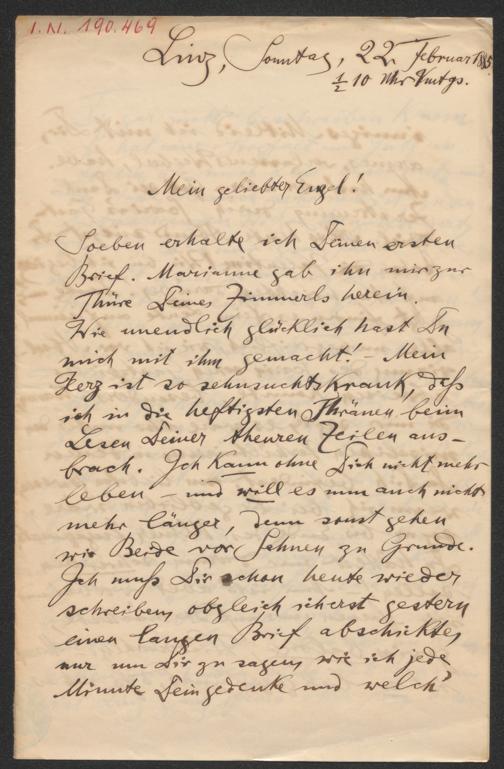 I.N. 190.469
Linz, Sonntag, 22. Februar 1885
½ 10 Uhr Vmtgs.
Mein geliebter Engel!
Soeben erhalte ich Deinen ersten
Brief. Marianne gab ihn mir zur
Thüre Deines Zimmerls herein.
Wie unendlich glücklich hast Du
mich mit ihm gemacht! – Mein
Herz ist so sehnsuchtskrank, daß
ich in die heftigsten Thränen beim
Lesen Deiner theuren Zeilen aus-
brach. Ich kann ohne Dich nicht mehr
leben – und will es nun auch nicht
mehr länger, denn sonst gehen
wir Beide vor Sehnen zu Grunde.
Ich muß Dir schon heute wieder
schreiben, obgleich ich erst gestern
einen langen Brief abschickte,
nur um Dir zu sagen, wie ich jede
Minute Dein gedenke und welch'